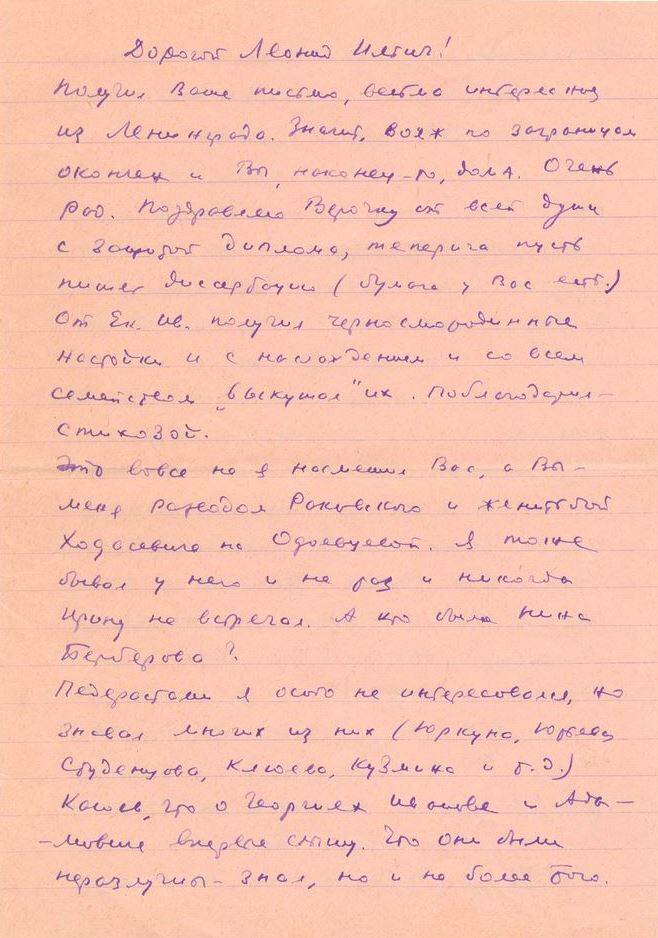 Дорогой Леонид Ильич!
Получил Ваше письмо, весьма интересное
из Ленинграда. Значит, вояж по заграницам
окончен и Вы, наконец-то, дома. Очень
рад. Поздравляю Верочку от всей души
с защитой диплома, теперича пусть
пишет диссертацию (бумага у Вас есть.)
От Ек. Ив. получил черносмородинные
настойки и с наслаждением и со всем
семейством „выкушал" их. Поблагодарил
стихозой.
Это вовсе не я насмешил Вас, а Вы-
меня разводом Раковского и женитьбой
Ходасевича на Одоевцевой. Я тоже
бывал у него и не раз и никогда
Ирину не встречал. А кто была Нина
Берберова?
Педерастами я особо не интересовался, но
знавал многих из них (Юркуна, Юрьева
Студенцова, Клюева, Кузмина и т.д.)
Каюсь, что о Георгиях Иванове и Ада-
-мовиче впервые слышу. Что они были
неразлучны - знал, но и не более того.